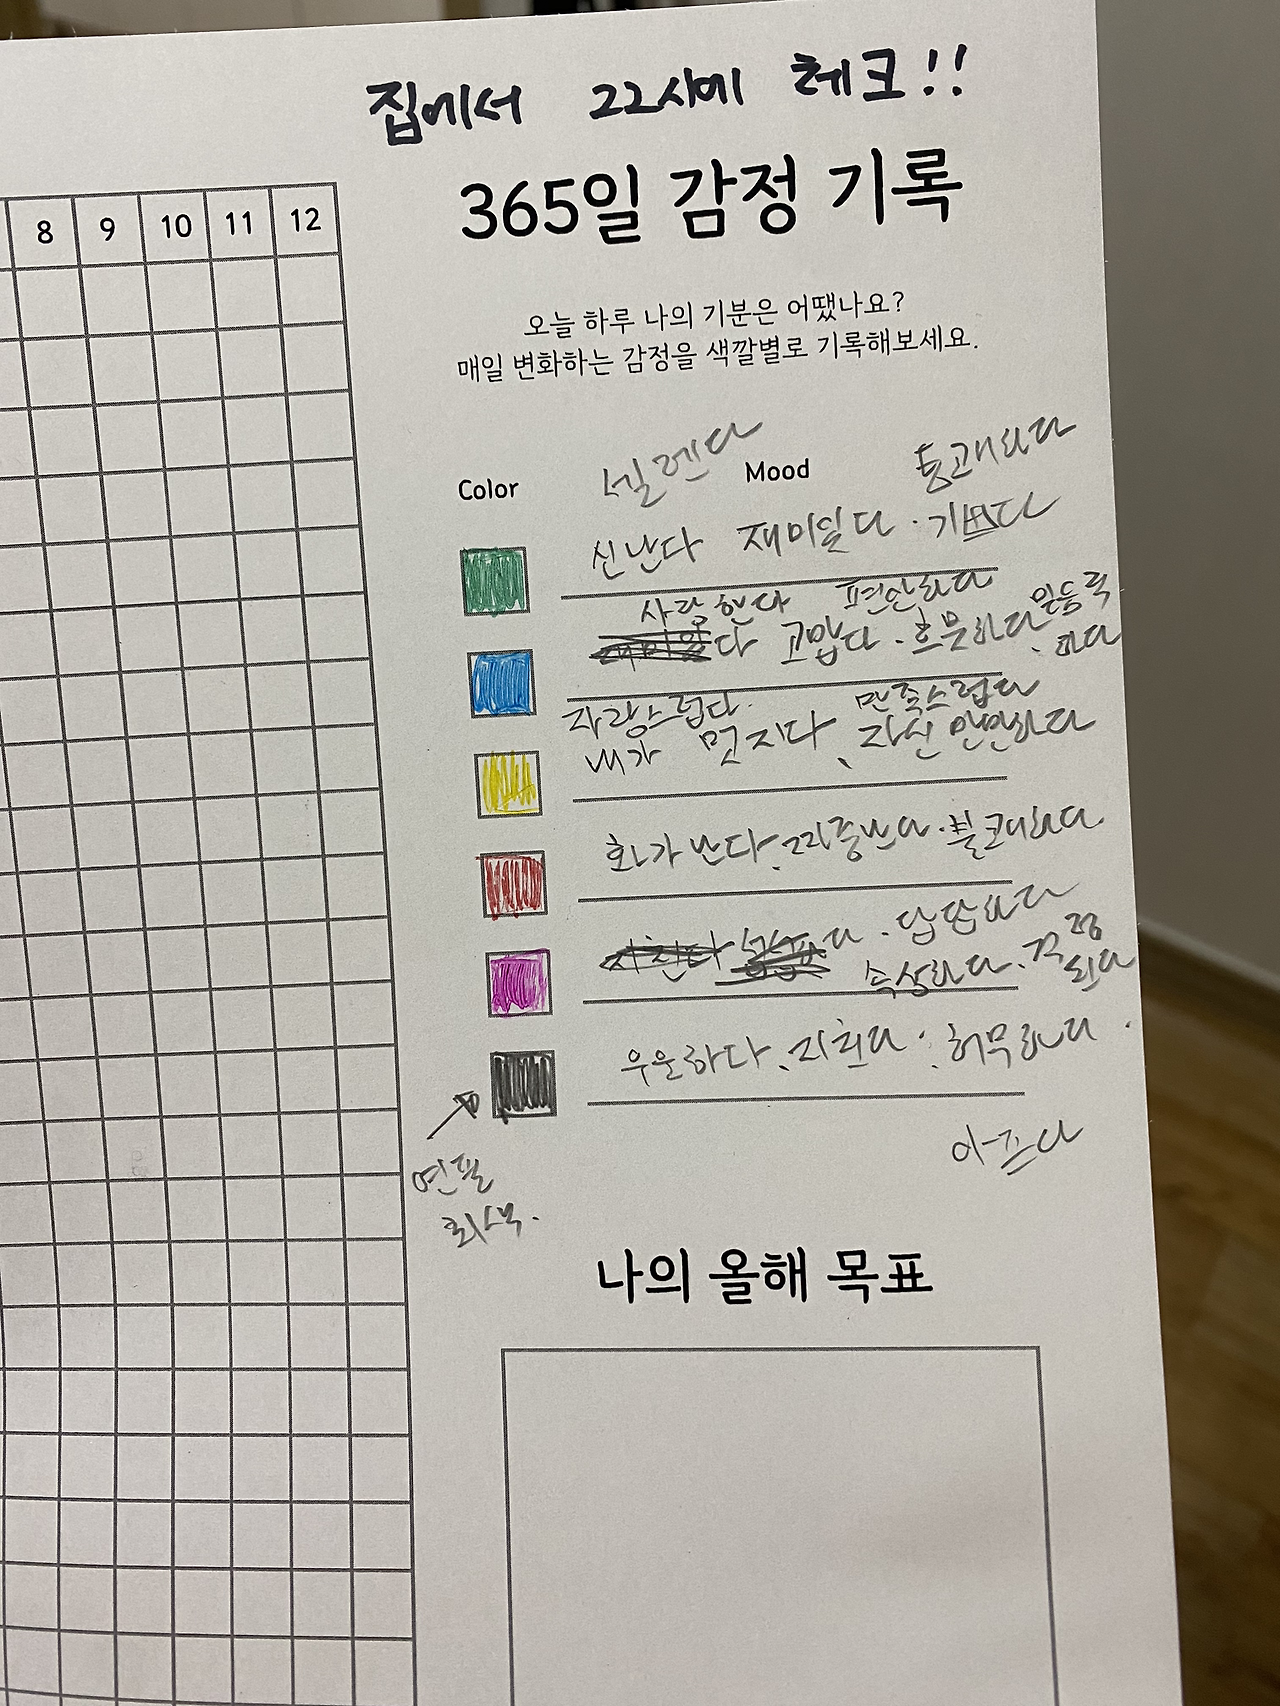 집에서 22시에 체크!!
365일 감정 기록
오늘 하루 나의 기분은 어땠나요?
매일 변화하는 감정을 색깔별로 기록해보세요.
8 9 10 11 12
Color Mood
설렌다 통쾌하다
신난다 재미있다 · 기쁘다
사랑한다 편안하다
다 고맙다 · 흐뭇하다、
하다
자랑스럽다. 만족스럽다
내가 멋지다、자신만만하다
화가 난다、짜증난다 · 불쾌하다.
다 . 답답하다
속상하다 . 걱정
되다
우울하다、지친다 . 허무하다 .
아프다
연필
회색.
나의 올해 목표